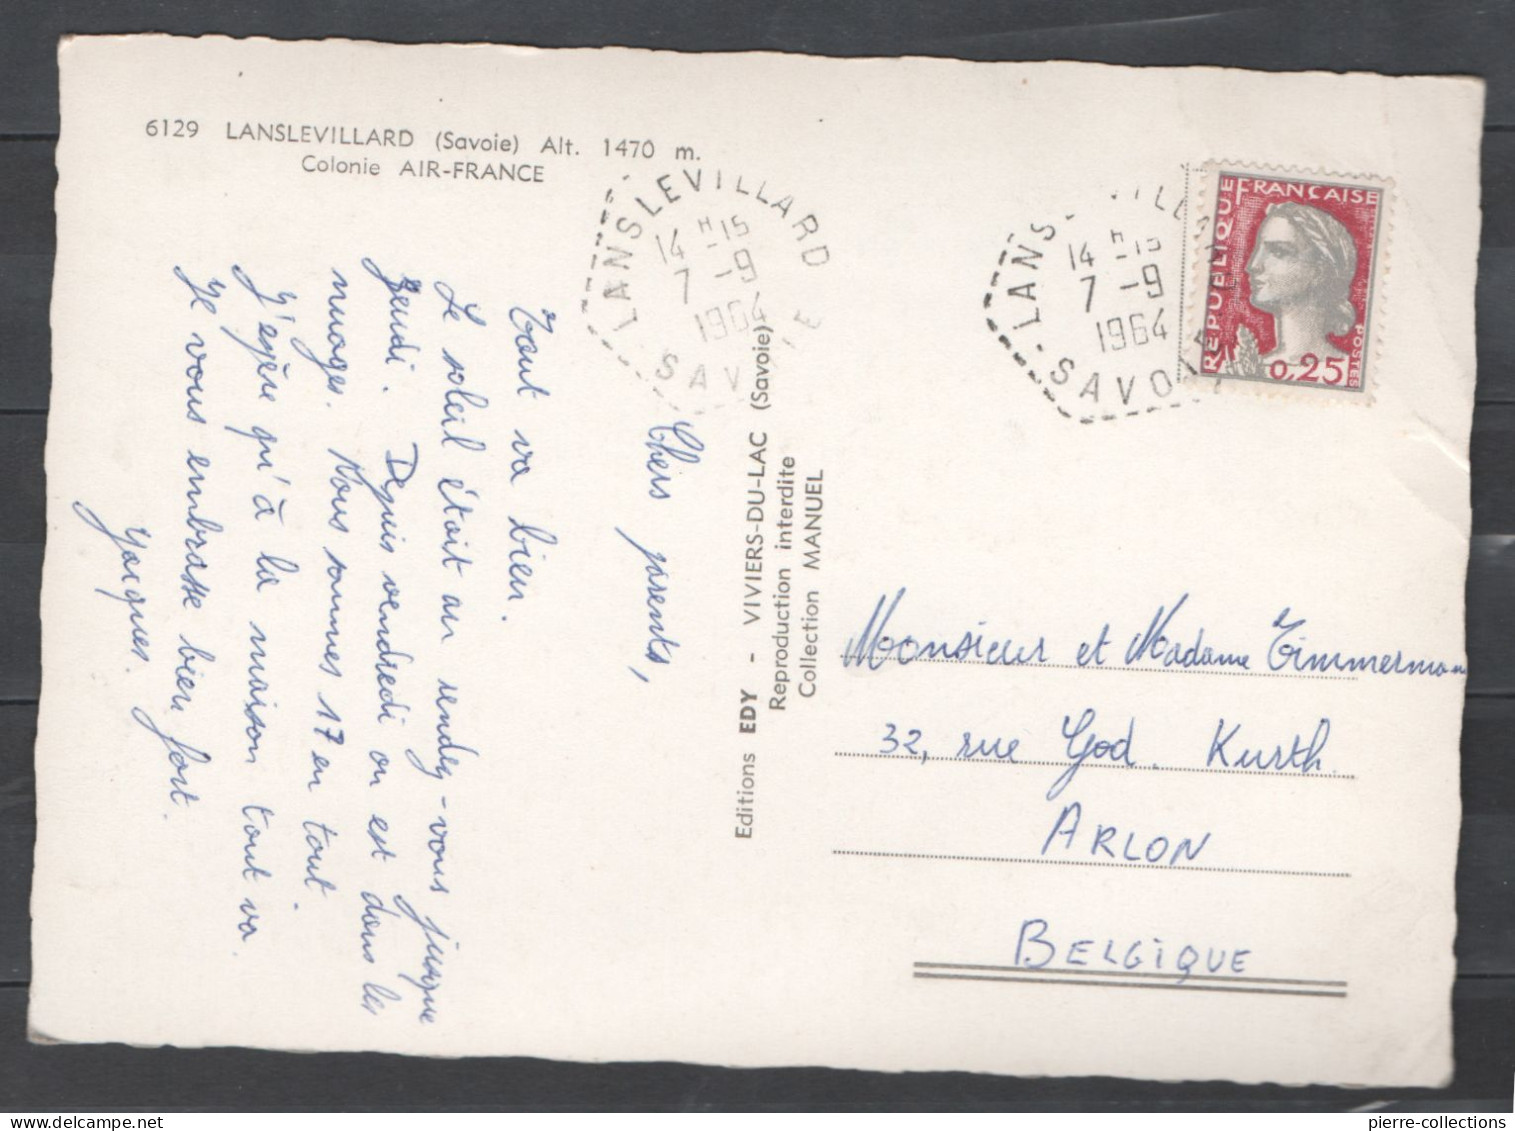 6129 LANSLEVILLARD (Savoie) Alt. 1470 m.
Colonie AIR-FRANCE
LANSLEVILLARD
14 H 15
7 -9
1964
SAVOIE
14 H 15
7 -9
1964
SAVOIE
RÉPUBLIQUE FRANÇAISE
POSTES
0,25
Chers parents,
Tout va bien.
Le soleil était au rendez-vous jusque
jeudi. Depuis vendredi on est dans les
nuages. Nous sommes 17 en tout.
J'espère qu'à la maison tout va.
Je vous embrasse bien fort.
Jacques.
Editions EDY - VIVIERS-DU-LAC (Savoie)
Reproduction interdite
Collection MANUEL
Monsieur et Madame Timmermans
32, rue God. Kurth.
ARLON
BELGIQUE
pierre-collections